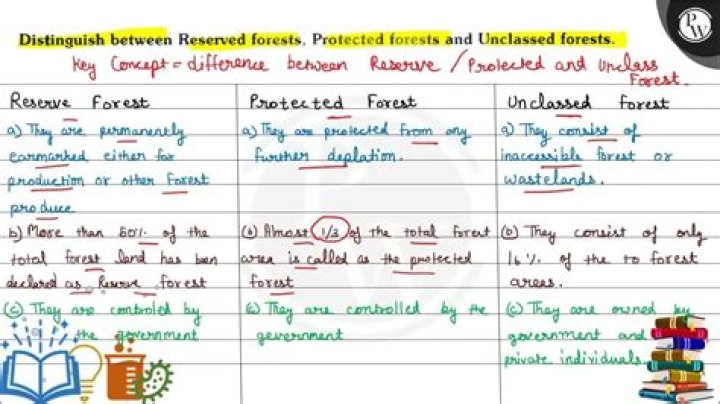 Distinguish between Reserved forests, Protected forests and Unclassed forests.
Key Concept = difference between Reserve / Protected and Unclass
Forest.
Reserve Forest
a) They are permanently
earmarked either for
production or other Forest
produce
b) More than 50% of the
total forest land has been
declared as Reserve forest
(c) They are controled by
the government
Protected Forest
a) They are protected from any
further deplation.
(b) Almost 1/3 of the total forest
area is called as the protected
forest
(c) They are controlled by the
government
Unclassed forest
a) They consist of
inaccessible forest or
wastelands.
(b) They consist of only
16% of the to forest
areas.
(c) They are owned by
government and
private individuals.
PW